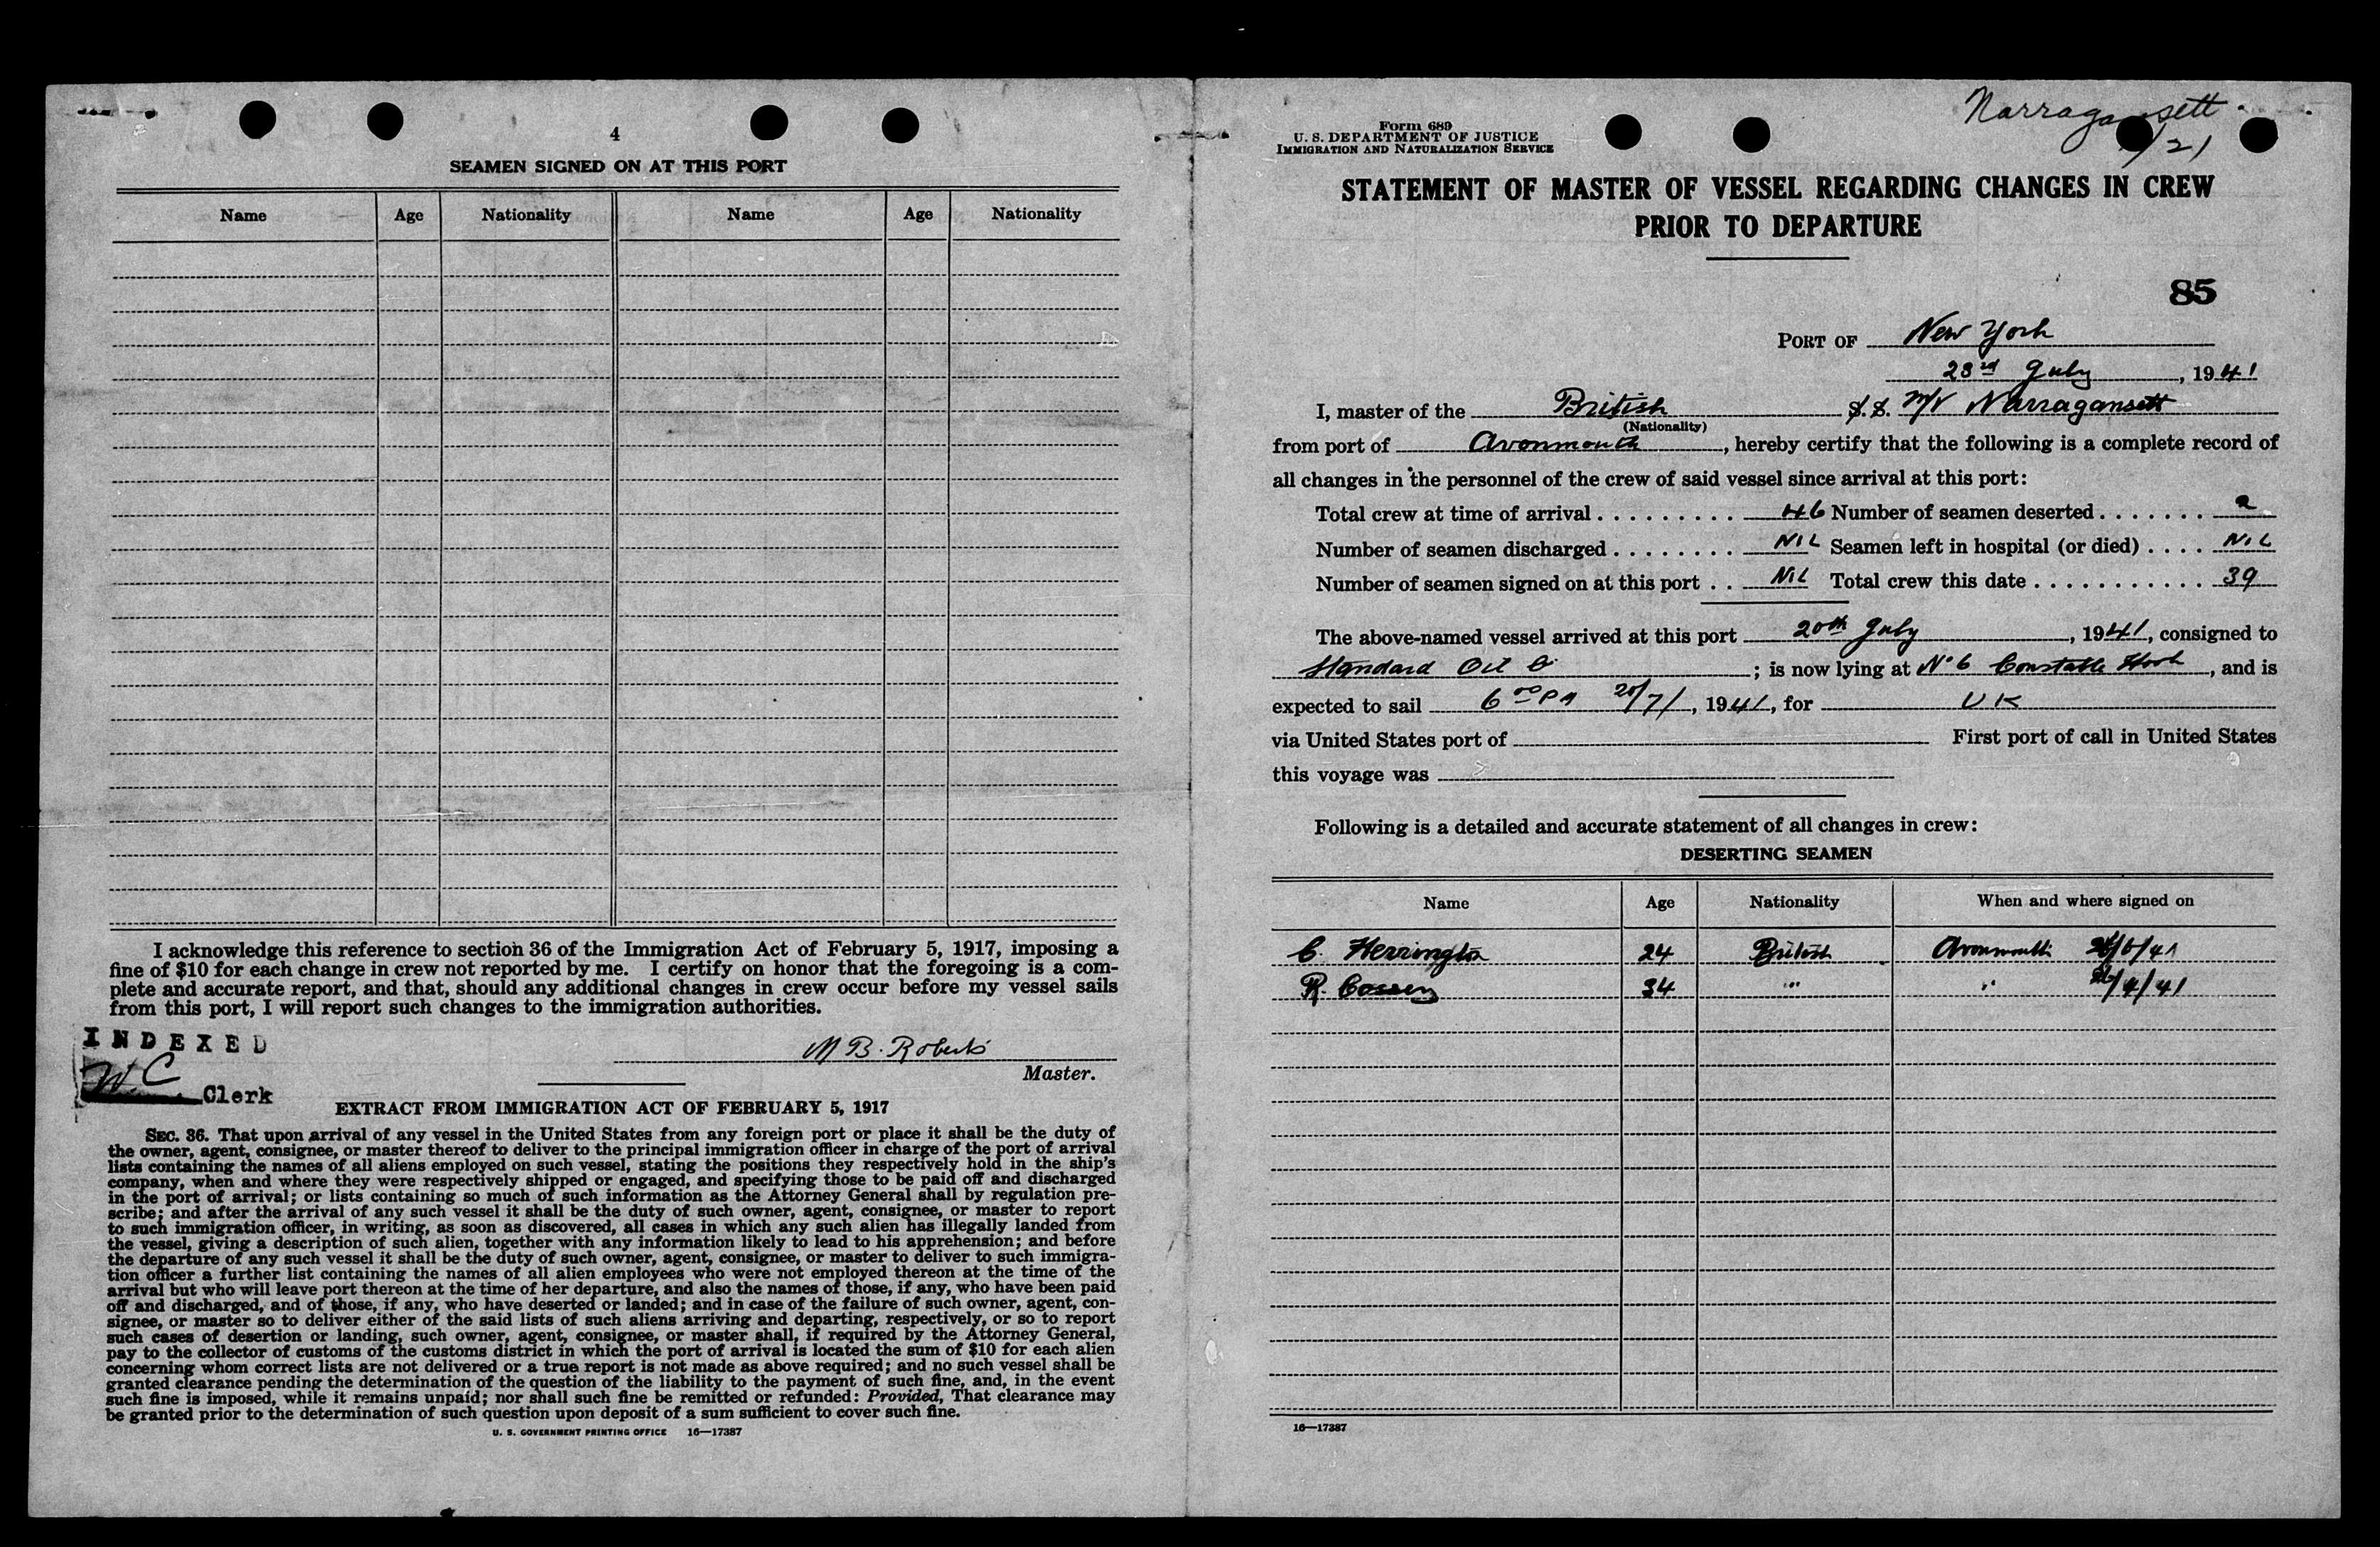 4
SEAMEN SIGNED ON AT THIS PORT
Name Age Nationality Name Age Nationality
I acknowledge this reference to section 36 of the Immigration Act of February 5, 1917, imposing a
fine of $10 for each change in crew not reported by me. I certify on honor that the foregoing is a com-
plete and accurate report, and that, should any additional changes in crew occur before my vessel sails
from this port, I will report such changes to the immigration authorities.
INDEXED
W.C
Clerk
M B. Roberts
Master.
EXTRACT FROM IMMIGRATION ACT OF FEBRUARY 5, 1917
SEC. 36. That upon arrival of any vessel in the United States from any foreign port or place it shall be the duty of
the owner, agent, consignee, or master thereof to deliver to the principal immigration officer in charge of the port of arrival
lists containing the names of all aliens employed on such vessel, stating the positions they respectively hold in the ship's
company, when and where they were respectively shipped or engaged, and specifying those to be paid off and discharged
in the port of arrival; or lists containing so much of such information as the Attorney General shall by regulation pre-
scribe; and after the arrival of any such vessel it shall be the duty of such owner, agent, consignee, or master to report
to such immigration officer, in writing, as soon as discovered, all cases in which any such alien has illegally landed from
the vessel, giving a description of such alien, together with any information likely to lead to his apprehension; and before
the departure of any such vessel it shall be the duty of such owner, agent, consignee, or master to deliver to such immigra-
tion officer a further list containing the names of all alien employees who were not employed thereon at the time of the
arrival but who will leave port thereon at the time of her departure, and also the names of those, if any, who have been paid
off and discharged, and of those, if any, who have deserted or landed; and in case of the failure of such owner, agent, con-
signee, or master so to deliver either of the said lists of such aliens arriving and departing, respectively, or so to report
such cases of desertion or landing, such owner, agent, consignee, or master shall, if required by the Attorney General,
pay to the collector of customs of the customs district in which the port of arrival is located the sum of $10 for each alien
concerning whom correct lists are not delivered or a true report is not made as above required; and no such vessel shall be
granted clearance pending the determination of the question of the liability to the payment of such fine, and, in the event
such fine is imposed, while it remains unpaid; nor shall such fine be remitted or refunded: Provided, That clearance may
be granted prior to the determination of such question upon deposit of a sum sufficient to cover such fine.
U. S. GOVERNMENT PRINTING OFFICE 16—17387
Narragansett
/21
Form 689
U. S. DEPARTMENT OF JUSTICE
IMMIGRATION AND NATURALIZATION SERVICE
STATEMENT OF MASTER OF VESSEL REGARDING CHANGES IN CREW
PRIOR TO DEPARTURE
85
PORT OF New York
23rd July, 1941
I, master of the British S.S. M/V Narragansett
(Nationality)
from port of Avonmouth, hereby certify that the following is a complete record of
all changes in the personnel of the crew of said vessel since arrival at this port:
Total crew at time of arrival . . . . . . . . . 46 Number of seamen deserted . . . . . . . 2
Number of seamen discharged . . . . . . . . NIL Seamen left in hospital (or died) . . . . NIL
Number of seamen signed on at this port . . NIL Total crew this date . . . . . . . . . . . 39
The above-named vessel arrived at this port 20th July, 1941, consigned to
Standard Oil Co; is now lying at No 6 Constable Hook, and is
expected to sail 6 00 PM /7/, 1941, for UK
via United States port of First port of call in United States
this voyage was
Following is a detailed and accurate statement of all changes in crew:
DESERTING SEAMEN
Name Age Nationality When and where signed on
C. Herrington 24 British Avonmouth /41
R. 34 " " /4/41
16—17387